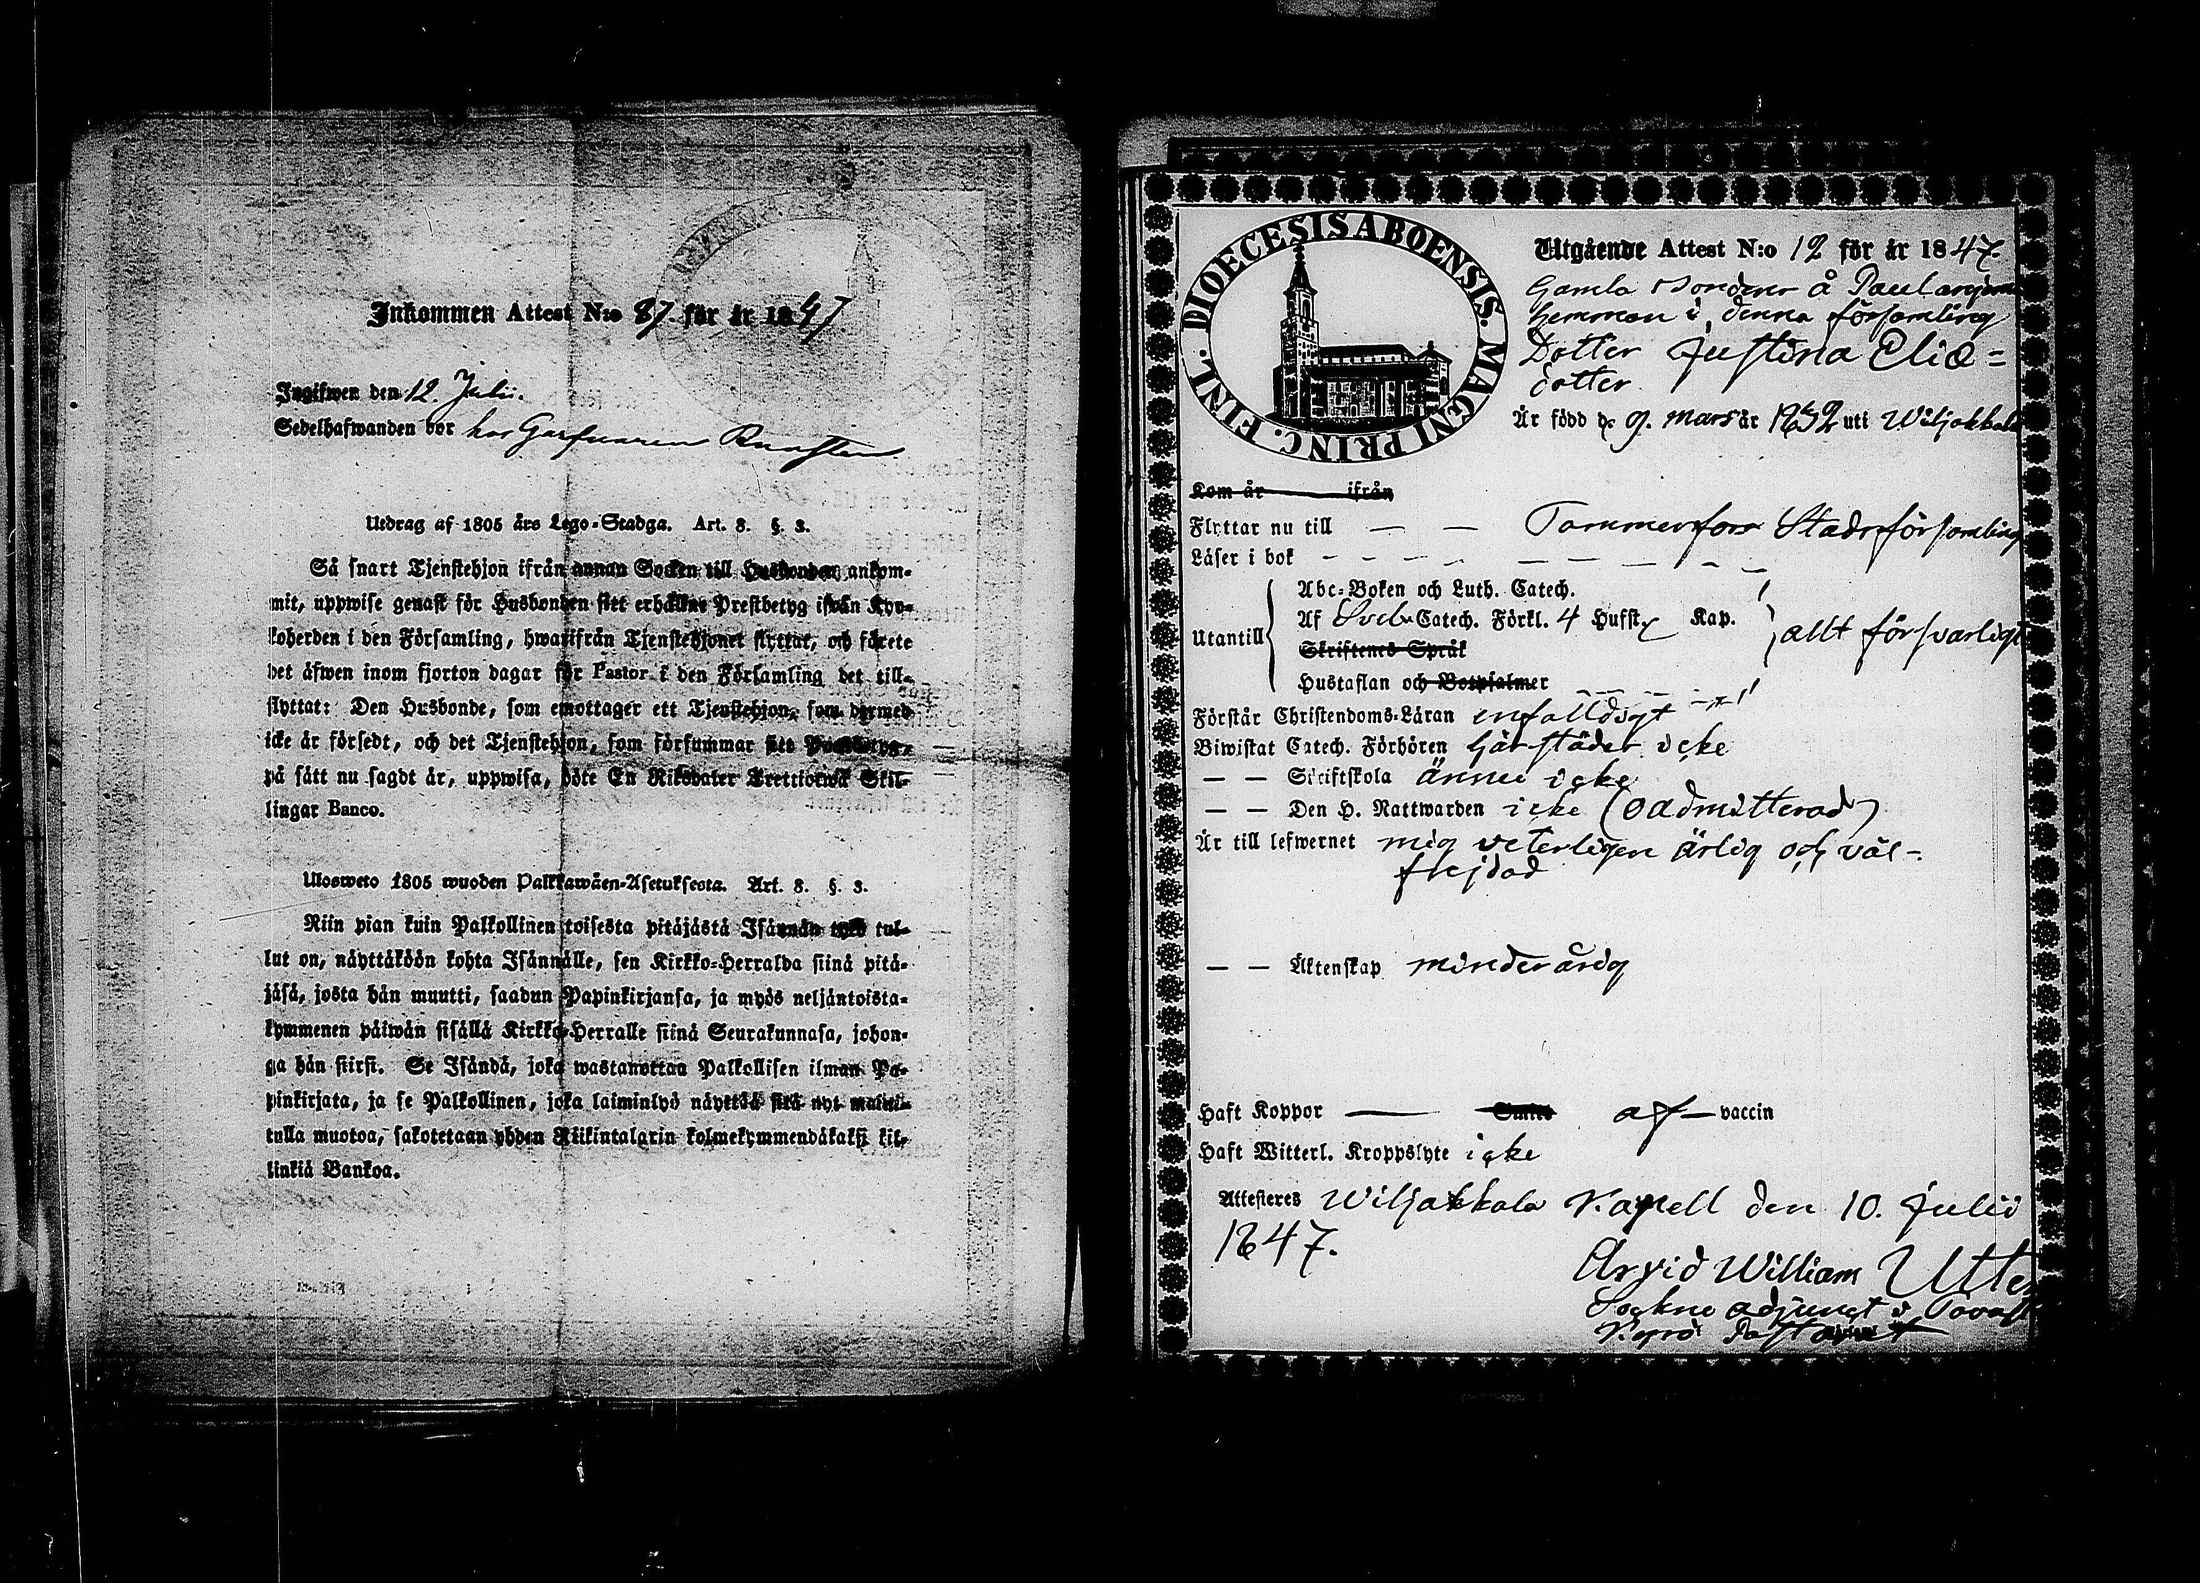 Inkommen Attest N:o 87. för år 1847
Ingifwen den 12. Julii.
Sedelhafwanden bor hos Garfvaren
Utdrag af 1805 års Lego-Stadga. Art. 8. §. 3.
Så snart Tjenstehjon ifrån annan Socken till Husbonden ankom-
mit, uppwise genast för Husbonden sitt erhållne Prestbetyg ifrån Kyr-
koherden i den Församling, hwarifrån Tjenstehjonet flyttat, och förete
det äfwen inom fjorton dagar för Pastor i den Församling det till-
flyttat: Den Husbonde, som emottager ett Tjenstehjon, som dermed
icke är försedt, och det Tjenstehjon, som försummar sitt Prestbetyg,
på sätt nu sagdt är, uppwisa, böte En Riksdaler Trettiotwå Skil-
lingar Banco.
Ulosweto 1805 wuoden Palkkawäen-Asetuksesta. Art. 8. §. 3.
Niin pian kuin Palkollinen toisesta pitäjästä Isännän tykö tul-
lut on, näyttäköön kohta Isännälle, sen Kirkko-Herralda siinä pitä-
jäsä, josta hän muutti, saadun Papinkirjansa, ja myös neljäntoista-
kymmenen päiwän sisällä Kirkko-Herralle siinä Seurakunnasa, johon-
ga hän siirsi. Se Isändä, joka wastanottaa Palkollisen ilman Pa-
pinkirjata, ja se Palkollinen, joka laiminlyö näyttää sitä nyt maini-
tulla muotoa, sakotetaan yhden Riikintalarin kolmekymmendäkaksi kil-
linkiä Bankoa.
DIOECESIS ABOENSIS. MAGNI PRINC. FINL.
Utgående Attest N:o 12 för år 1847.
Gamla Bondens å
Hemman i denna församling
Dotter Justina Eliæ-
dotter
Är född d. 9. Mars år 1832 uti Wiljakkala
Kom år ifrån
Flyttar nu till — — Tammerfors Stadsförsamling
Läser i bok
Abc-Boken och Luth. Catech.
Utantill Af Sveb. Catech. Förkl. 4 Hufst. Kap. allt försvarligt
Skriftenes Språk
Hustaflan och Botpsalmer
Förstår Christendoms-Läran enfalldigt
Biwistat Catech. Förhören härstädes icke
— — Skriftskola ännu icke
— — Den H. Nattwarden icke (oadmitterad)
Är till lefwernet mig veterligen ärlig och väl-
frejdad
— — Äktenskap minderårig
Haft Koppor — af — vaccin
Haft Witterl. Kroppslyte icke
Attesteres Wiljakkala Kapell den 10. Julii
1847.
Arvid William Utter
Sockne adjunct i